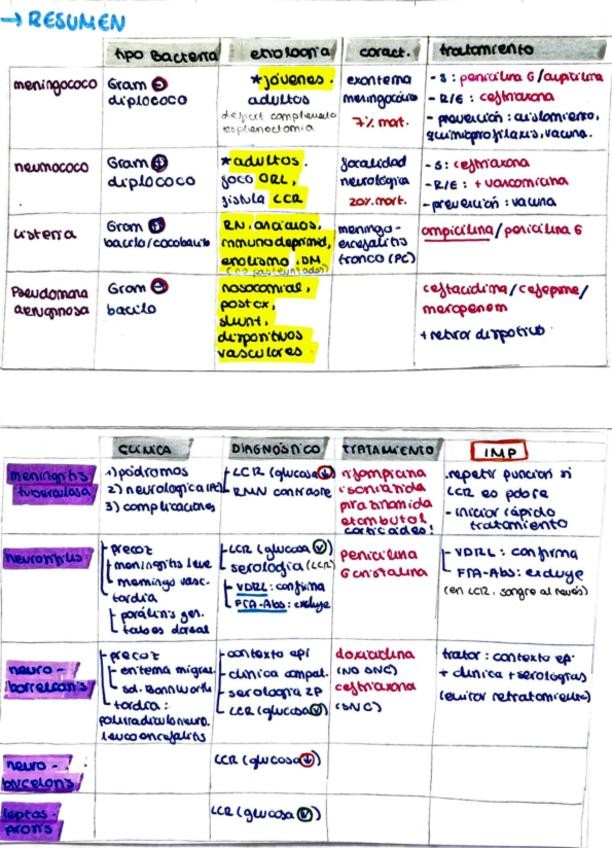 → RESUMEN
tipo Bacteria
etiologia
caract.
tratamiento
meningococo
Gram ⊖
diplococo
*jóvenes.
adultos
deficit complemento
esplenectomia
exantema
meningocócico
7% mort.
- S: penicilina G/ampicilina
- R/E: ceftriaxona
- prevención: aislamiento,
quimioprofilaxis, vacuna.
neumococo
Gram ⊕
diplococo
*adultos.
foco ORL,
fistula LCR
focalidad
neurológica
20% mort.
- S: ceftriaxona
- R/E: + vancomicina
- prevención: vacuna
Listeria
Gram ⊕
bacilo/cocobacilo
RN, ancianos,
inmunodeprimid,
enolismo, DM
meningo-
encefalitis
tronco (PC)
ampicilina/penicilina G
Pseudomona
aeruginosa
Gram ⊖
bacilo
nosocomial,
postcx,
shunt,
dispositivos
vasculores
ceftacidima/cefepime/
meropenem
+ retirar dispotivo
CLÍNICA
DIAGNÓSTICO
TRATAMIENTO
IMP
meningitis
tuberculosa
1) pódromos
2) neurologica (PC)
3) complicaciones
LCR (glucosa ↓)
RMN contraste
rifampicina
isoniazida
pirazinamida
etambutol
corticoides!
.repetir puncion si
LCR es pobre
- iniciar rápido
tratamiento
neurosífilis
precoz
meningitis leve
meningo vasc.
tardia
parálisis gen.
tabes dorsal
LCR (glucosa ✓)
serologia (LCR)
VDRL: confirma
FTA-Abs: excluye
Penicilina
G cristalina
VDRL: confirma
FTA-Abs: excluye
(en LCR, sangre al revés)
neuro-
borreliosis
precoz
eritema migra.
sd. Bannwarth
tardia:
polirradiculoneuro.
leucoencefalitis
contexto epi
clinica compat.
serologia sp
LCR (glucosa ✓)
doxiciclina
(NO SNC)
ceftriaxona
(SNC)
tratar: contexto epi
+ clinica + serologias
(evitar retratamiento)
neuro-
brucelosis
LCR (glucosa ↓)
leptos-
pirosis
LCR (glucosa ✓)